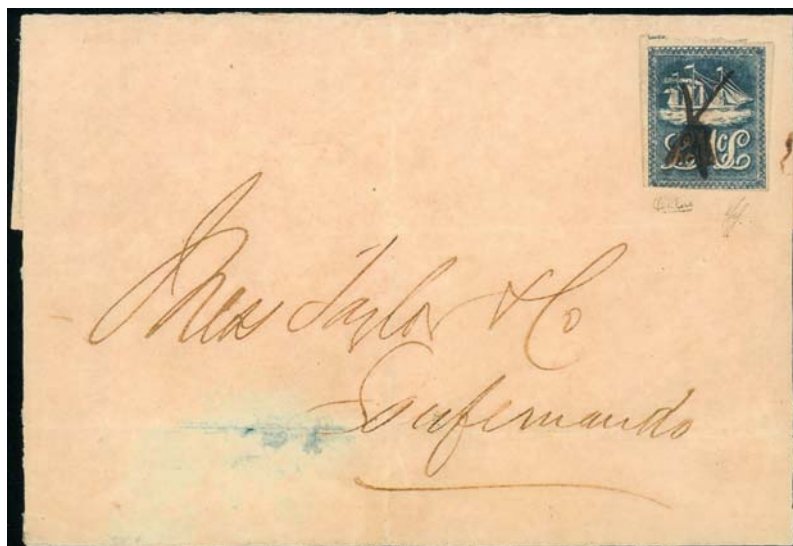 LMcL
Mess Taylor & Co
Sanfernando